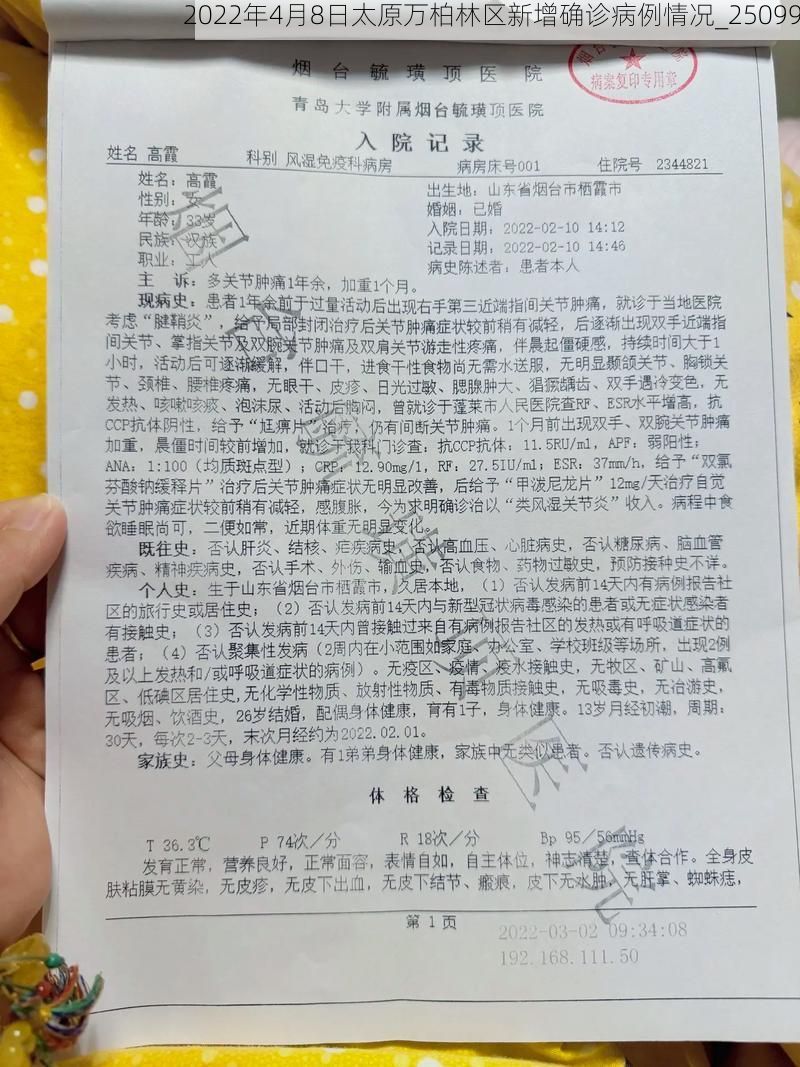 2022年4月8日太原万柏林区新增确诊病例情况_25099
烟台毓璜顶医院
病案复印专用章
青岛大学附属烟台毓璜顶医院
入院记录
姓名 高霞 科别 风湿免疫科病房 病房床号001 住院号 2344821
姓名：高霞 出生地：山东省烟台市栖霞市
性别：女 婚姻：已婚
年龄：33岁 入院日期：2022-02-10 14:12
民族：汉族 记录日期：2022-02-10 14:46
职业：工人 病史陈述者：患者本人
主 诉：多关节肿痛1年余，加重1个月。
现病史：患者1年余前于过量活动后出现右手第三近端指间关节肿痛，就诊于当地医院
考虑“腱鞘炎”，给予局部封闭治疗后关节肿痛症状较前稍有减轻，后逐渐出现双手近端指
间关节、掌指关节及双腕关节肿痛及双肩关节游走性疼痛，伴晨起僵硬感，持续时间大于1
小时，活动后可逐渐缓解，伴口干，进食干性食物尚无需水送服，无明显颞颌关节、胸锁关
节、颈椎、腰椎疼痛，无眼干、皮疹、日光过敏、腮腺肿大、猖獗龋齿、双手遇冷变色，无
发热、咳嗽咳痰、泡沫尿、活动后胸闷，曾就诊于蓬莱市人民医院查RF、ESR水平增高，抗
CCP抗体阴性，给予“尪痹片”治疗，仍有间断关节肿痛。1个月前出现双手、双腕关节肿痛
加重，晨僵时间较前增加，就诊于我科门诊查：抗CCP抗体：11.5RU/ml，APF：弱阳性；
ANA：1:100（均质斑点型）；CRP：12.90mg/l，RF：27.5IU/ml；ESR：37mm/h，给予“双氯
芬酸钠缓释片”治疗后关节肿痛症状无明显改善，后给予“甲泼尼龙片”12mg/天治疗自觉
关节肿痛症状较前稍有减轻，感腹胀，今为求明确诊治以“类风湿关节炎”收入。病程中食
欲睡眠尚可，二便如常，近期体重无明显变化。
既往史：否认肝炎、结核、疟疾病史，否认高血压、心脏病史，否认糖尿病、脑血管
疾病、精神疾病史，否认手术、外伤、输血史，否认食物、药物过敏史，预防接种史不详。
个人史：生于山东省烟台市栖霞市，久居本地，（1）否认发病前14天内有病例报告社
区的旅行史或居住史；（2）否认发病前14天内与新型冠状病毒感染的患者或无症状感染者
有接触史；（3）否认发病前14天内曾接触过来自有病例报告社区的发热或有呼吸道症状的
患者；（4）否认聚集性发病（2周内在小范围如家庭、办公室、学校班级等场所，出现2例
及以上发热和/或呼吸道症状的病例）。无疫区、疫情、疫水接触史，无牧区、矿山、高氟
区、低碘区居住史，无化学性物质、放射性物质、有毒物质接触史，无吸毒史，无冶游史，
无吸烟、饮酒史，26岁结婚，配偶身体健康，育有1子，身体健康。13岁月经初潮，周期：
30天，每次2-3天，末次月经约为2022.02.01.
家族史：父母身体健康。有1弟弟身体健康，家族中无类似患者。否认遗传病史。
体格检查
T 36.3℃ P 74次／分 R 18次／分 Bp 95／56mmHg
发育正常，营养良好，正常面容，表情自如，自主体位，神志清楚，查体合作。全身皮
肤粘膜无黄染，无皮疹，无皮下出血，无皮下结节、瘢痕，皮下无水肿，无肝掌、蜘蛛痣，
第 1 页
2022-03-02 09:34:08
192.168.111.50